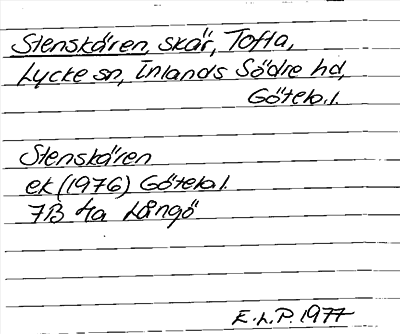 Stenskären, skär, Tofta,
Lycke sn, Inlands Södre hd,
Göteb. l.
Stenskären
ek (1976) Göteb l.
7B 4a Långö
E.L.P. 1977